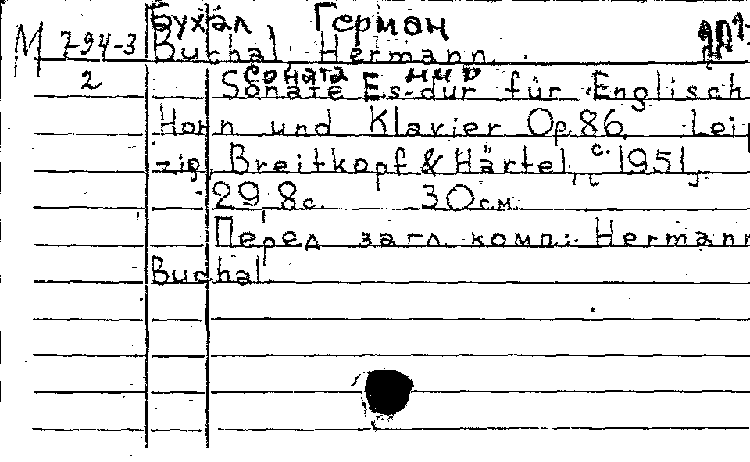 Бухал Герман
М 7-94-3 Buchal, Hermann.
2 Соната ми b
Sonate Es-dur für Englisch
Horn und Klavier Op. 86. Leip
zig, Breitkopf & Härtel, c. 1951.
29, 8 с. 30 см.
Перед загл. комп.: Hermann
Buchal.